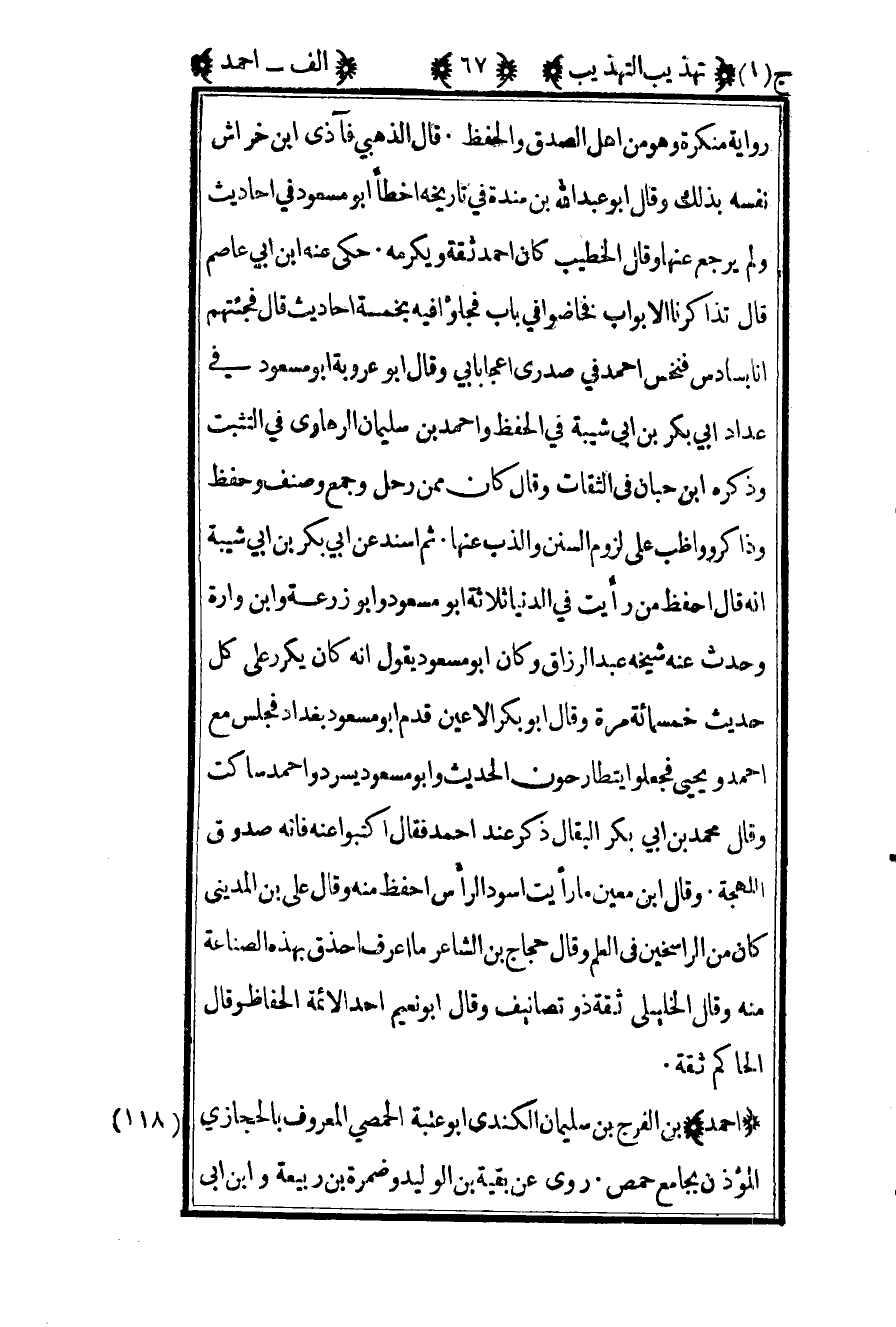 ج(١) ﴿ تهذيب التهذيب ﴾ ﴿ ٦٧ ﴾ ﴿ الف ـ احمد ﴾
رواية منكرة وهو من اهل الصدق والحفظ ٠ قال الذهبي فآذى ابن خراش
نفسه بذلك وقال ابو عبدالله بن مندة في تاريخه اخطأ ابو مسعود في احاديث
ولم يرجع عنها وقال الخطيب كان احمد ثقة و يكرمه ٠ حكى عنه ابن ابي عاصم
قال تذاكرنا الابواب فخاضوا في باب فجاؤا فيه بخمسة احاديث قال فجئتهم
انا بسادس فنخس احمد في صدرى اعجابابي وقال ابو عروبة ابو مسعود في
عداد ابي بكر بن ابي شيبة في الحفظ واحمد بن سليمان الرهاوى في التثبت
وذكره ابن حبان فى الثقات وقال كان ممن رحل وجمع وصنف وحفظ
وذاكر وواظب على لزوم السنن والذب عنها ٠ ثم اسند عن ابي بكر بن ابي شيبة
انه قال احفظ من رأيت في الدنيا ثلاثة ابو مسعود وابو زرعة وابن وارة
وحدث عنه شيخه عبدالرزاق وكان ابو مسعود يقول انه كان يكرر على كل
حديث خمسمائة مرة وقال ابو بكر الاعين قدم ابو مسعود بغداد فجلس مع
احمد و يحيى فجعلوا يتطارحون الحديث وابو مسعود يسرد واحمد ساكت
وقال محمد بن ابي بكر البقال ذكر عند احمد فقال اكتبوا عنه فانه صدوق
اللهجة ٠ وقال ابن معين ما رأيت اسود الرأس احفظ منه وقال على بن المدينى
كان من الراسخين فى العلم وقال حجاج بن الشاعر ما اعرف احذق بهذه الصناعة
منه وقال الخليلى ثقة ذو تصانيف وقال ابو نعيم احد الائمة الحفاظ وقال
الحاكم ثقة ٠
﴿ احمد ﴾ بن الفرج بن سليمان الكندى ابو عتبة الحمصي المعروف بالحجازي (١١٨)
المؤذن بجامع حمص ٠ روى عن بقية بن الوليد وضمرة بن ربيعة و ابن ابى